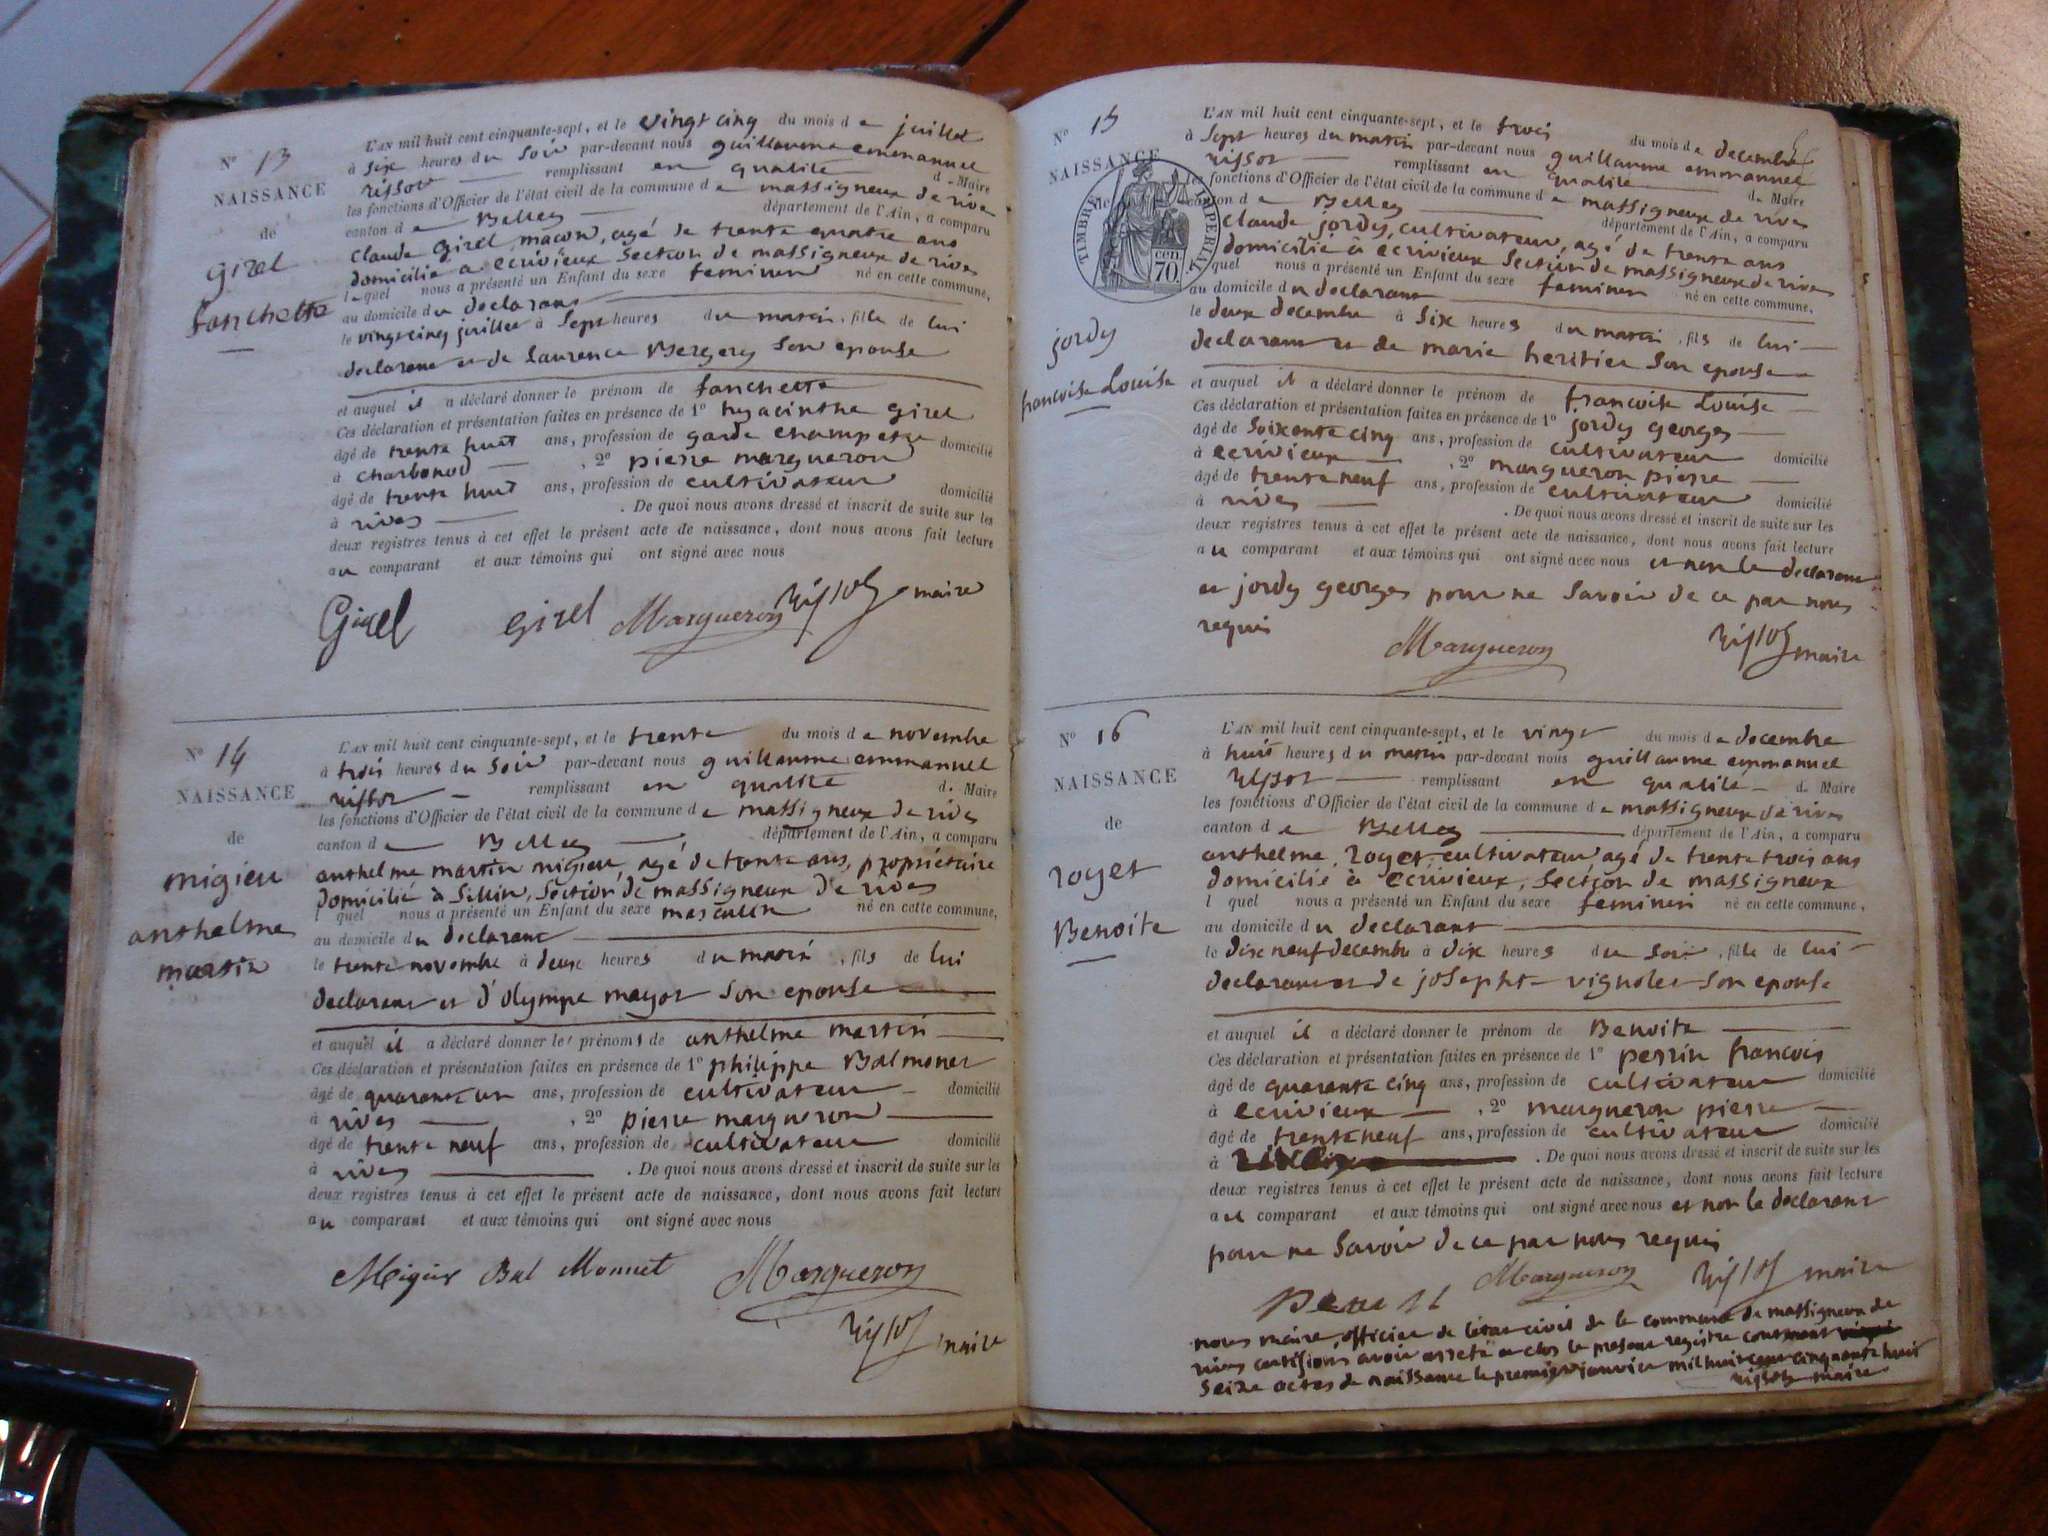 N° 13
NAISSANCE
de
Girel
fanchette
L'AN mil huit cent cinquante-sept, et le vingt cinq du mois de juillet
à Six heures du Soir par-devant nous guillaume emmanuel
rissot remplissant en qualité de Maire
les fonctions d'Officier de l'état civil de la commune de massigneux de rives
canton de Belley département de l'Ain, a comparu
claude Girel, macon, agé de trente quatre ans
domicilié a ecrivieux Section de massigneux de rives
lequel nous a présenté un Enfant du sexe feminin né en cette commune,
au domicile du declarant
le vingt cinq juillet à Sept heures du matin, fille de lui
declarant et de laurence Bergery Son epouse
et auquel il a déclaré donner le prénom de fanchette
Ces déclaration et présentation faites en présence de 1° hyacinthe Girel
âgé de trente huit ans, profession de garde champetre domicilié
à charbonod , 2° pierre margueron
âgé de trente huit ans, profession de cultivateur domicilié
à rives . De quoi nous avons dressé et inscrit de suite sur les
deux registres tenus à cet effet le présent acte de naissance, dont nous avons fait lecture
au comparant et aux témoins qui ont signé avec nous
Girel Girel Margueron rissot maire
N° 14
NAISSANCE
de
migieu
anthelme
martin
L'AN mil huit cent cinquante-sept, et le trente du mois de novembre
à trois heures du Soir par-devant nous guillaume emmanuel
rissot remplissant en qualité de Maire
les fonctions d'Officier de l'état civil de la commune de massigneux de rives
canton de Belley département de l'Ain, a comparu
anthelme martin migieu, agé de trente ans, propriétaire
domicilié à Sillin, Section de massigneux de rives
l quel nous a présenté un Enfant du sexe masculin né en cette commune,
au domicile du declarant
le trente novembre à deux heures du matin, fils de lui
declarant et d'Olympe mayot Son epouse
et auquel il a déclaré donner le prénoms de anthelme martin
Ces déclaration et présentation faites en présence de 1° philippe Balmonet
âgé de quarante un ans, profession de cultivateur domicilié
à rives , 2° pierre margueron
âgé de trente neuf ans, profession de cultivateur domicilié
à rives . De quoi nous avons dressé et inscrit de suite sur les
deux registres tenus à cet effet le présent acte de naissance, dont nous avons fait lecture
au comparant et aux témoins qui ont signé avec nous
Migieu Bal Monnet Margueron
rissot maire
N° 15
NAISSANCE
de
TIMBRE IMPERIAL
cen 70
jordy
francoise Louise
L'AN mil huit cent cinquante-sept, et le trois du mois de decembre
à Sept heures du matin par-devant nous guillaume emmanuel
rissot remplissant en qualité de Maire
les fonctions d'Officier de l'état civil de la commune de massigneux de rives
canton de Belley département de l'Ain, a comparu
claude jordy, cultivateur, agé de trente ans
domicilié à ecrivieux Section de massigneux de rives
quel nous a présenté un Enfant du sexe feminin né en cette commune,
au domicile du declarant
le deux decembre à Six heures du matin, fils de lui
declarant et de marie heritier Son epouse
et auquel il a déclaré donner le prénom de francoise Louise
Ces déclaration et présentation faites en présence de 1° jordy georges
âgé de Soixente cinq ans, profession de cultivateur domicilié
à ecrivieux , 2° margueron pierre
âgé de trente neuf ans, profession de cultivateur domicilié
à rives . De quoi nous avons dressé et inscrit de suite sur les
deux registres tenus à cet effet le présent acte de naissance, dont nous avons fait lecture
au comparant et aux témoins qui ont signé avec nous et non le declarant
et jordy georges pour ne Savoir de ce par nous
requis
Margueron rissot maire
N° 16
NAISSANCE
de
royet
Benoite
L'AN mil huit cent cinquante-sept, et le vingt du mois de decembre
à huit heures du matin par-devant nous guillaume emmanuel
rissot remplissant en qualité de Maire
les fonctions d'Officier de l'état civil de la commune de massigneux de rives
canton de Belley département de l'Ain, a comparu
anthelme, royet, cultivateur, agé de trente trois ans
domicilié à ecrivieux, Section de massigneux
l quel nous a présenté un Enfant du sexe feminin né en cette commune,
au domicile du declarant
le dix neuf decembre à dix heures du Soir, fille de lui
declarant et de josephte vignolet Son epouse
et auquel il a déclaré donner le prénom de Benoite
Ces déclaration et présentation faites en présence de 1° perrin francois
âgé de quarante cinq ans, profession de cultivateur domicilié
à ecrivieux , 2° margueron pierre
âgé de trente neuf ans, profession de cultivateur domicilié
à . De quoi nous avons dressé et inscrit de suite sur les
deux registres tenus à cet effet le présent acte de naissance, dont nous avons fait lecture
au comparant et aux témoins qui ont signé avec nous et non le declarant
pour ne Savoir de ce par nous requis
Margueron rissot maire
nous maire, officier de l'état civil de la commune de massigneux de
rives certifions avoir arreté et clos le present registre contenant
Seize actes de naissance le premier janvier mil huit cent cinquante huit
rissot maire